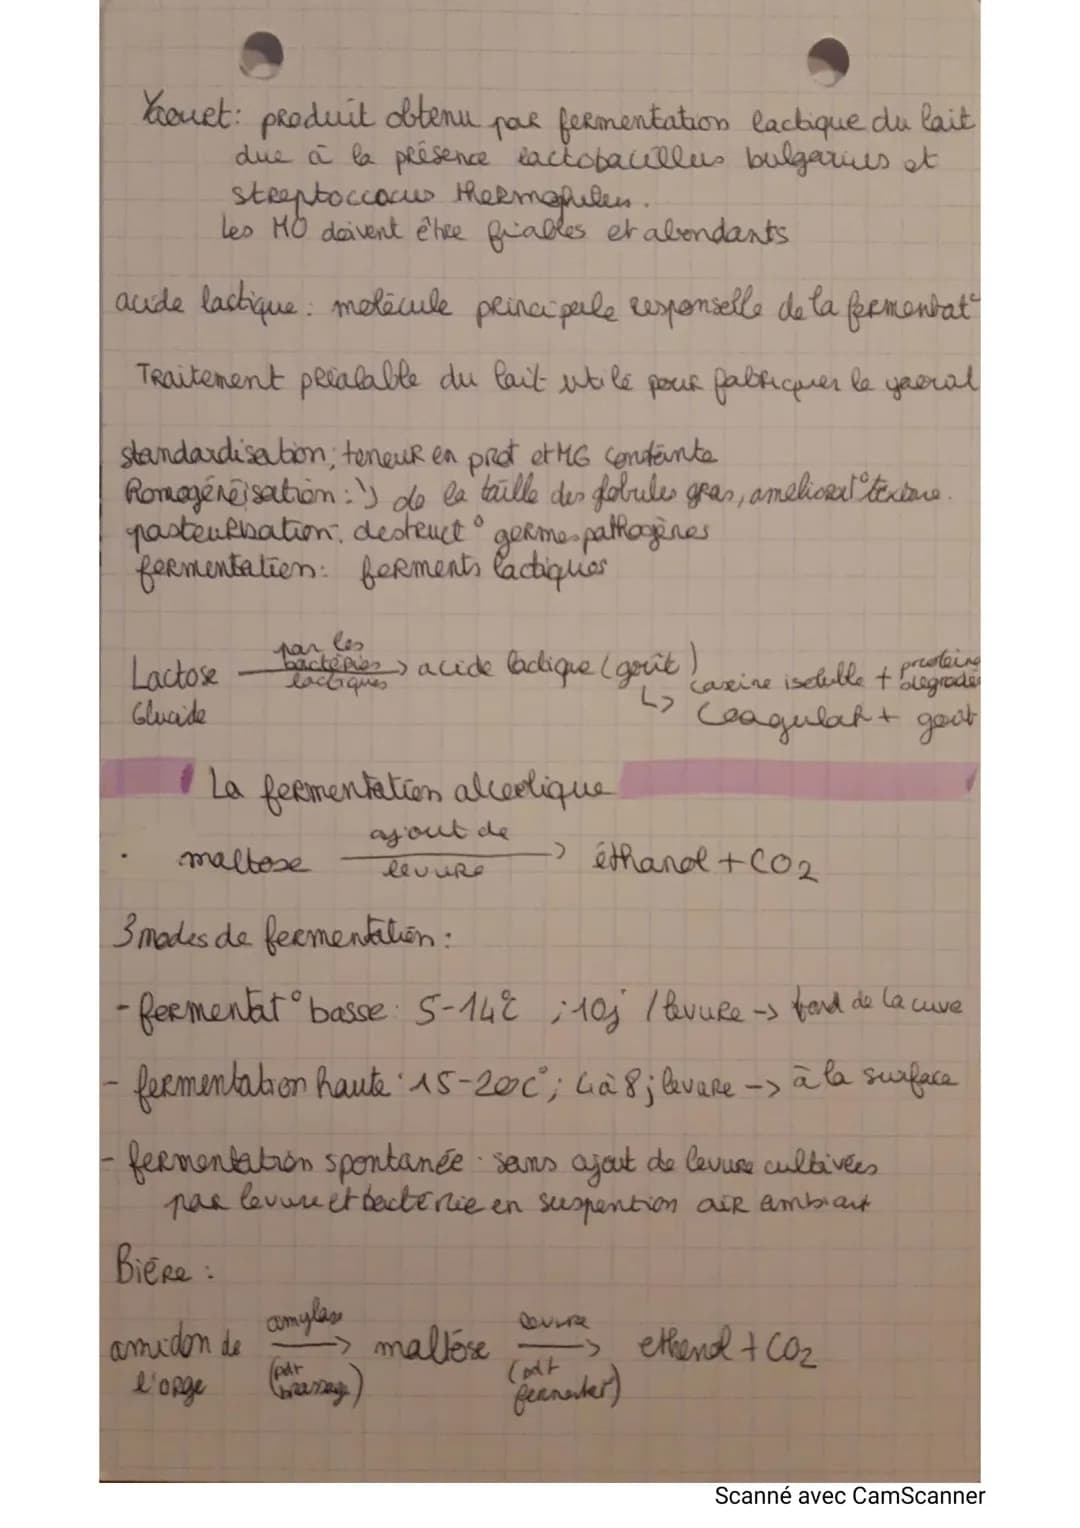 Yaourt: produit obtenu par fermentation lactique du lait
due à la présence lactobacillus bulgarius et
streptoccocus thermophiles.
Les MO doivent être fiables et abondants
acide lactique: molécule principale responselle de la fermentat°
Traitement préalable du lait utile pour fabriquer le yaorat
standardisation; teneur en prot et MG constante
Romogénéisation: ↘ de la taille des globules gras, améliorat° texture.
pasteurisation: destruct° germes pathogènes
fermentation: ferments lactiques
par les
Lactose bactéries → acide lactique (goût)
lactiques
caseine isoluble + proteine dégradée
Glucide
↳ Coagulat + gout
La fermentation alcoolique
ajout de
. maltose → éthanol + CO2
levure
3 modes de fermentation:
- fermentat° basse: 5-14°C ; 10j / levure -> fond de la cuve
- fermentation haute: 15-20C°; 4 à 8j levure -> à la surface
- fermentation spontanée: sans ajout de levure cultivées
par levure et bacterie en suspention air ambiant
Bière:
amylase levure
amidon de → maltose → ethanol + CO2
l'orge (pdt brassage) (pdt fermentat°)
Scanné avec CamScanner